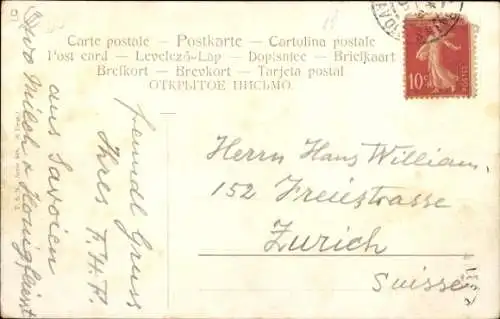 Carte postale – Postkarte – Cartolina postale
Post card – Levelező-Lap – Dopisnice – Briefkaart
Brefkort – Brevkort – Tarjeta postal
ОТКРЫТОЕ ПИСЬМО.
10c
POSTES
Herrn Hans William.
152 Freiestrasse
Zurich
Suisse
freundl Gruss
Ihres F. H. P.
aus Savoien
(Wo Milch & Honig fliesst